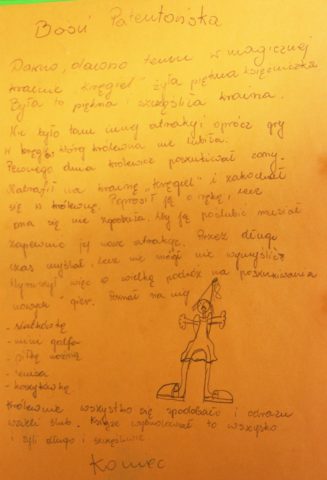 Baśń Patentońska
Dawno, dawno temu w magicznej
krainie "Kręgiel" żyła piękna księżniczka
Była to piękna i szczęśliwa kraina.
Nie było tam innej atrakcji oprócz gry
w kręgle, której królewna nie lubiła.
Pewnego dnia królewicz poszukiwał żony.
Natrafił na krainę "Kręgiel" i zakochał
się w królewnie. Poprosił ją o rękę, lecz
ona się nie zgodziła. Aby ją poślubić musiał
zapewnić jej nowe atrakcje. Przez długi
czas myślał, lecz nie mógł nie wymyślić.
Wyruszył więc o wielką podróż na poszukiwania
nowych gier. na nią
- siatkówkę
- mini golfa
- piłkę nożną
- tenisa
- koszykówkę
Królewnie wszystko się spodobało i odrazu
wzieli ślub. Książe wybudował to wszystko
i żyli długo i szczęśliwie
Koniec